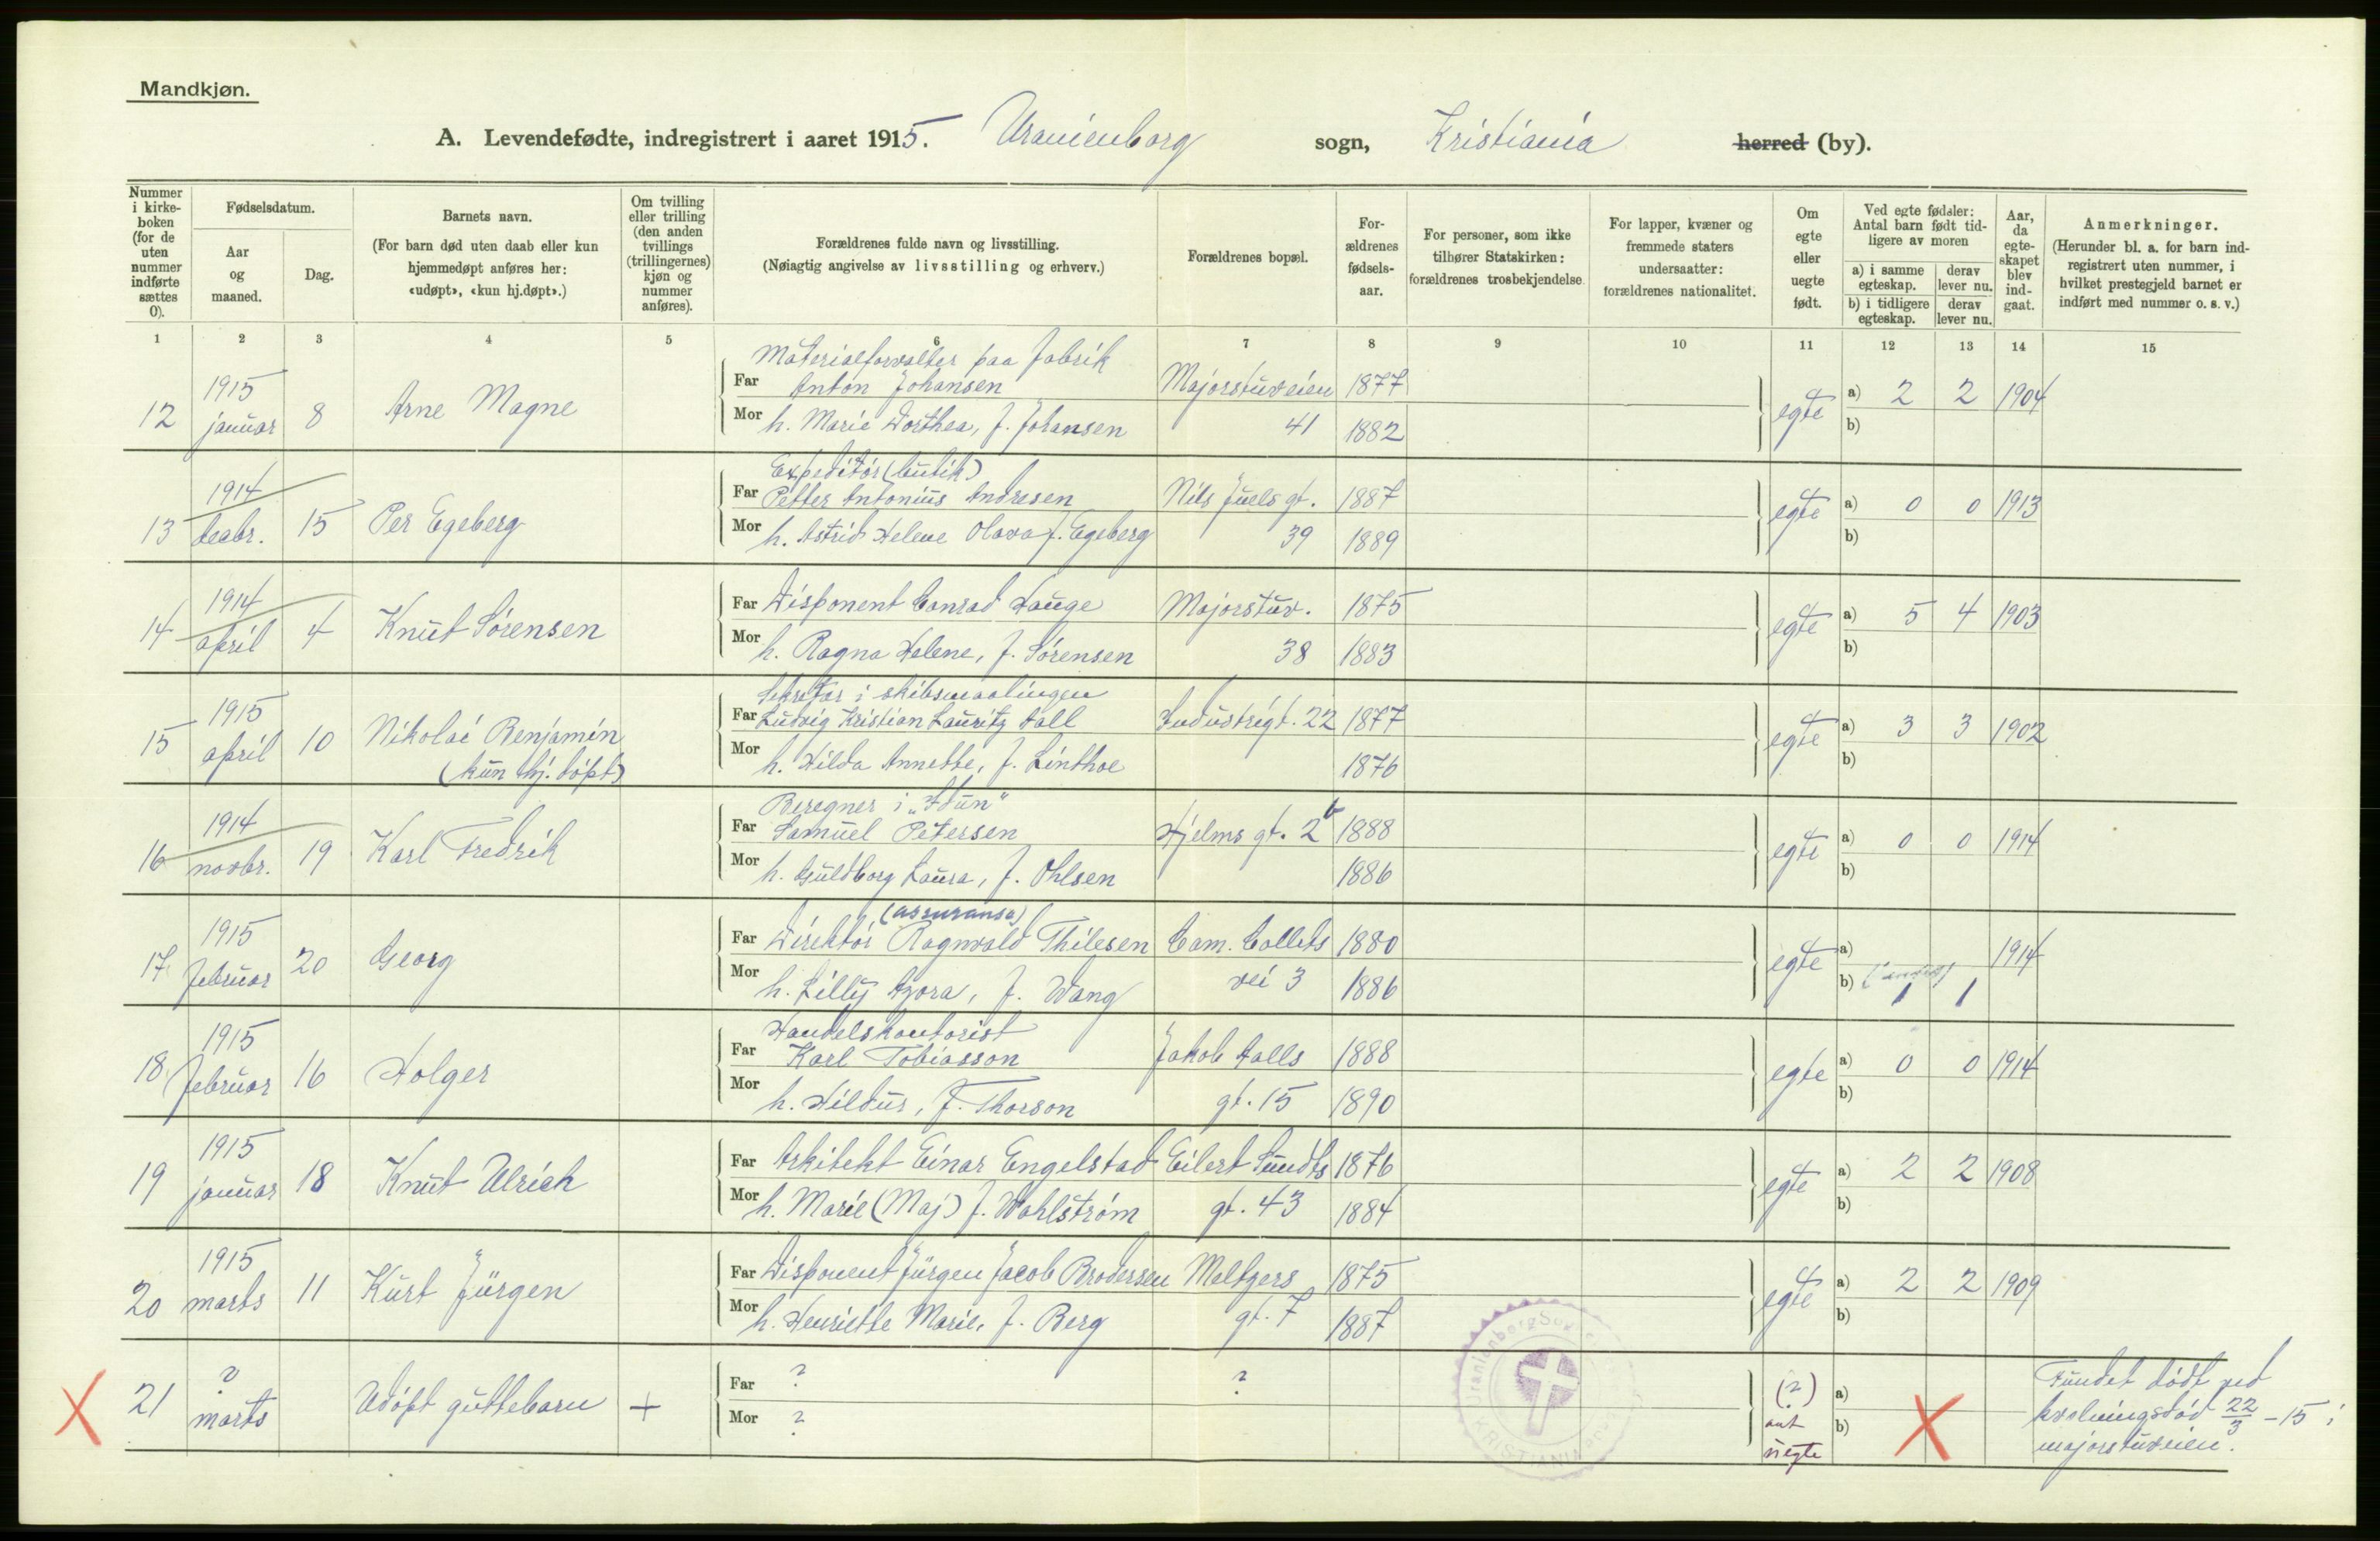 Mandkjøn.
A. Levendefødte, indregistrert i aaret 1915. Uranienborg sogn, Kristiania herred (by).
Nummer i kirke-boken (for de uten nummer indførte sættes 0).
Fødselsdatum.
Aar og maaned.
Dag.
Barnets navn.
(For barn død uten daab eller kun hjemmedøpt anføres her: «udøpt», «kun hj.døpt».)
Om tvilling eller trilling (den anden tvillings (trillingernes) kjøn og nummer anføres).
Forældrenes fulde navn og livsstilling.
(Nøiagtig angivelse av livsstilling og erhverv.)
Forældrenes bopæl.
For-ældrenes fødsels-aar.
For personer, som ikke tilhører Statskirken: forældrenes trosbekjendelse.
For lapper, kvæner og fremmede staters undersaatter: forældrenes nationalitet.
Om egte eller uegte født.
Ved egte fødsler: Antal barn født tid-ligere av moren
a) i samme egteskap. derav lever nu.
b) i tidligere egteskap. derav lever nu.
Aar, da egte-skapet blev ind-gaat.
Anmerkninger.
(Herunder bl. a. for barn ind-registrert uten nummer, i hvilket prestegjeld barnet er indført med nummer o. s. v.)
1 2 3 4 5 6 7 8 9 10 11 12 13 14 15
Materialforvalter paa fabrik
12 1915 januar 8 Arne Magne Far Anton Johansen Majorstuveien 1877 egte a) 2 2 1904
Mor h. Marie Dorthea, f. Johansen 41 1882 b)
Expeditør (butik)
13 1914 decbr. 15 Per Egeberg Far Petter Antonius Andresen Nils Juels gt. 1887 egte a) 0 0 1913
Mor h. Astrid Helene Olava f. Egeberg 39 1889 b)
14 1914 april 4 Knut Sørensen Far Disponent Conrad Hauge Majorstuv. 1875 egte a) 5 4 1903
Mor h. Ragna Helene, f. Sørensen 38 1883 b)
Sekretær i skibsmaalingen
15 1915 april 10 Nikolai Benjamin Far Ludvig Kristian Lauritz Aall Industrigt. 22 1877 egte a) 3 3 1902
(kun hj. døpt) Mor h. Hilda Annette, f. Linthoe 1876 b)
Beregner i „Idun"
16 1914 novbr. 19 Karl Fredrik Far Samuel Petersen Hjelms gt. 2b 1888 egte a) 0 0 1914
Mor h. Guldborg Laura, f. Ohlsen 1886 b)
(assuranse)
17 1915 februar 20 Georg Far Direktør Ragnvald Thilesen Cam. Colletts 1880 egte a) 1914
Mor h. Lilly Azora, f. Wang vei 3 1886 b) 1 1
Handelskontorist
18 1915 februar 16 Holger Far Karl Tobiasson Jakob Aalls 1888 egte a) 0 0 1914
Mor h. Hildur, f. Thorson gt. 15 1890 b)
19 1915 januar 18 Knut Ulrich Far Arkitekt Einar Engelstad Eilert Sundts 1876 egte a) 2 2 1908
Mor h. Marie (Maj) f. Wahlstrøm gt. 43 1884 b)
20 1915 marts 11 Kurt Jürgen Far Disponent Jürgen Jacob Brodersen Meltzers 1875 egte a) 2 2 1909
Mor h. Henriette Marie, f. Berg gt. 7 1887 b)
X 21 ? marts Udøpt guttebarn + Far ? ? (?) ant uegte a) X Fundet dødt ved
Mor ? b) hvelningsdør 22/3 - 15 i
majorstuveien.
Uranienborg
KRISTIANIA